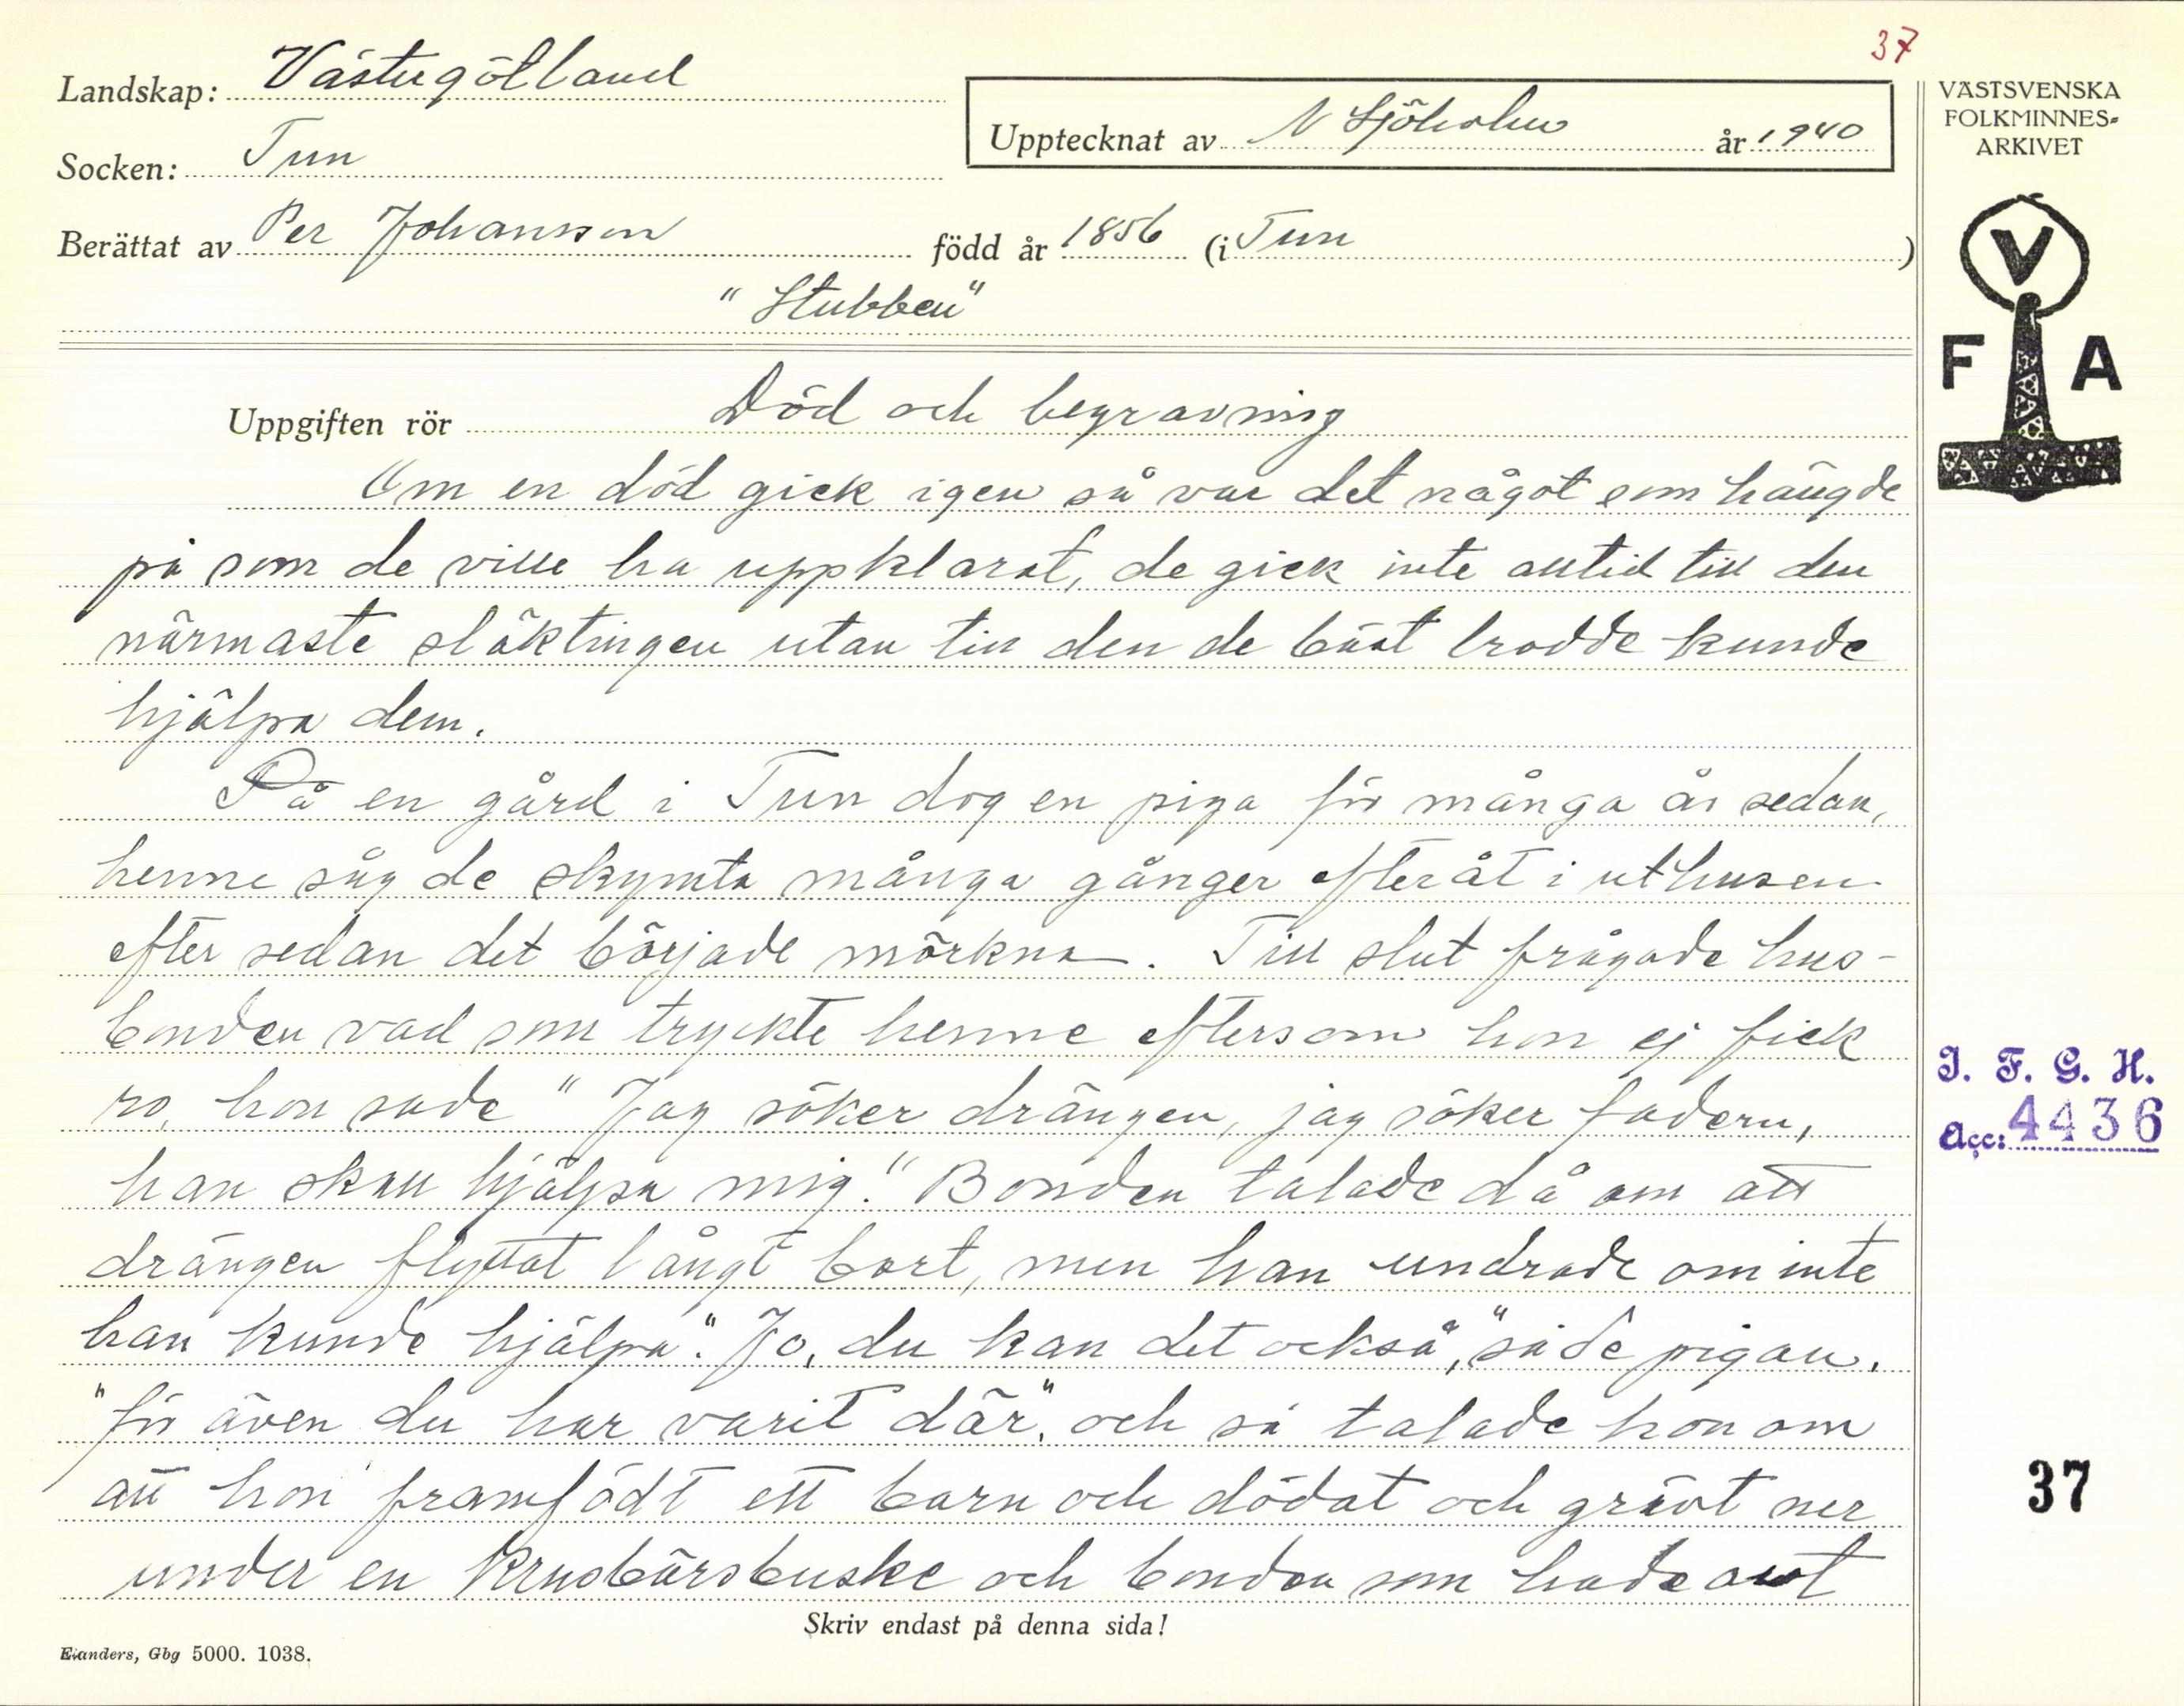 37
Landskap: Västergötland
Upptecknat av N Sjöholm år 1940
Socken: Tun
Berättat av Per Johansson född år 1856 (i Tun )
"Stubben"
VÄSTSVENSKA
FOLKMINNES-
ARKIVET
V
F A
Uppgiften rör Död och begravning
Om en död gick igen så var det något som hängde
på som de ville ha uppklarat, de gick inte alltid till den
närmaste släktingen utan till den de bäst trodde kunde
hjälpa dem.
På en gård i Tun dog en piga för många år sedan,
henne såg de skymta många gånger efteråt i uthusen
efter sedan det började mörkna. Till slut frågade hus-
bonden vad som tryckte henne eftersom hon ej fick
ro, hon sade "Jag söker drängen, jag söker fadern,
han skall hjälpa mig." Bonden talade då om att
drängen flyttat långt bort, men han undrade om inte
han kunde hjälpa. "Jo, du kan det också," sade pigan.
"för även du har varit där." och så talade hon om
att hon framfödt ett barn och dödat och grävt ner
under en krusbärsbuske och bonden som hade
I. F. G. H.
Acc: 4436
37
Skriv endast på denna sida!
Elanders, Gbg 5000. 1038.